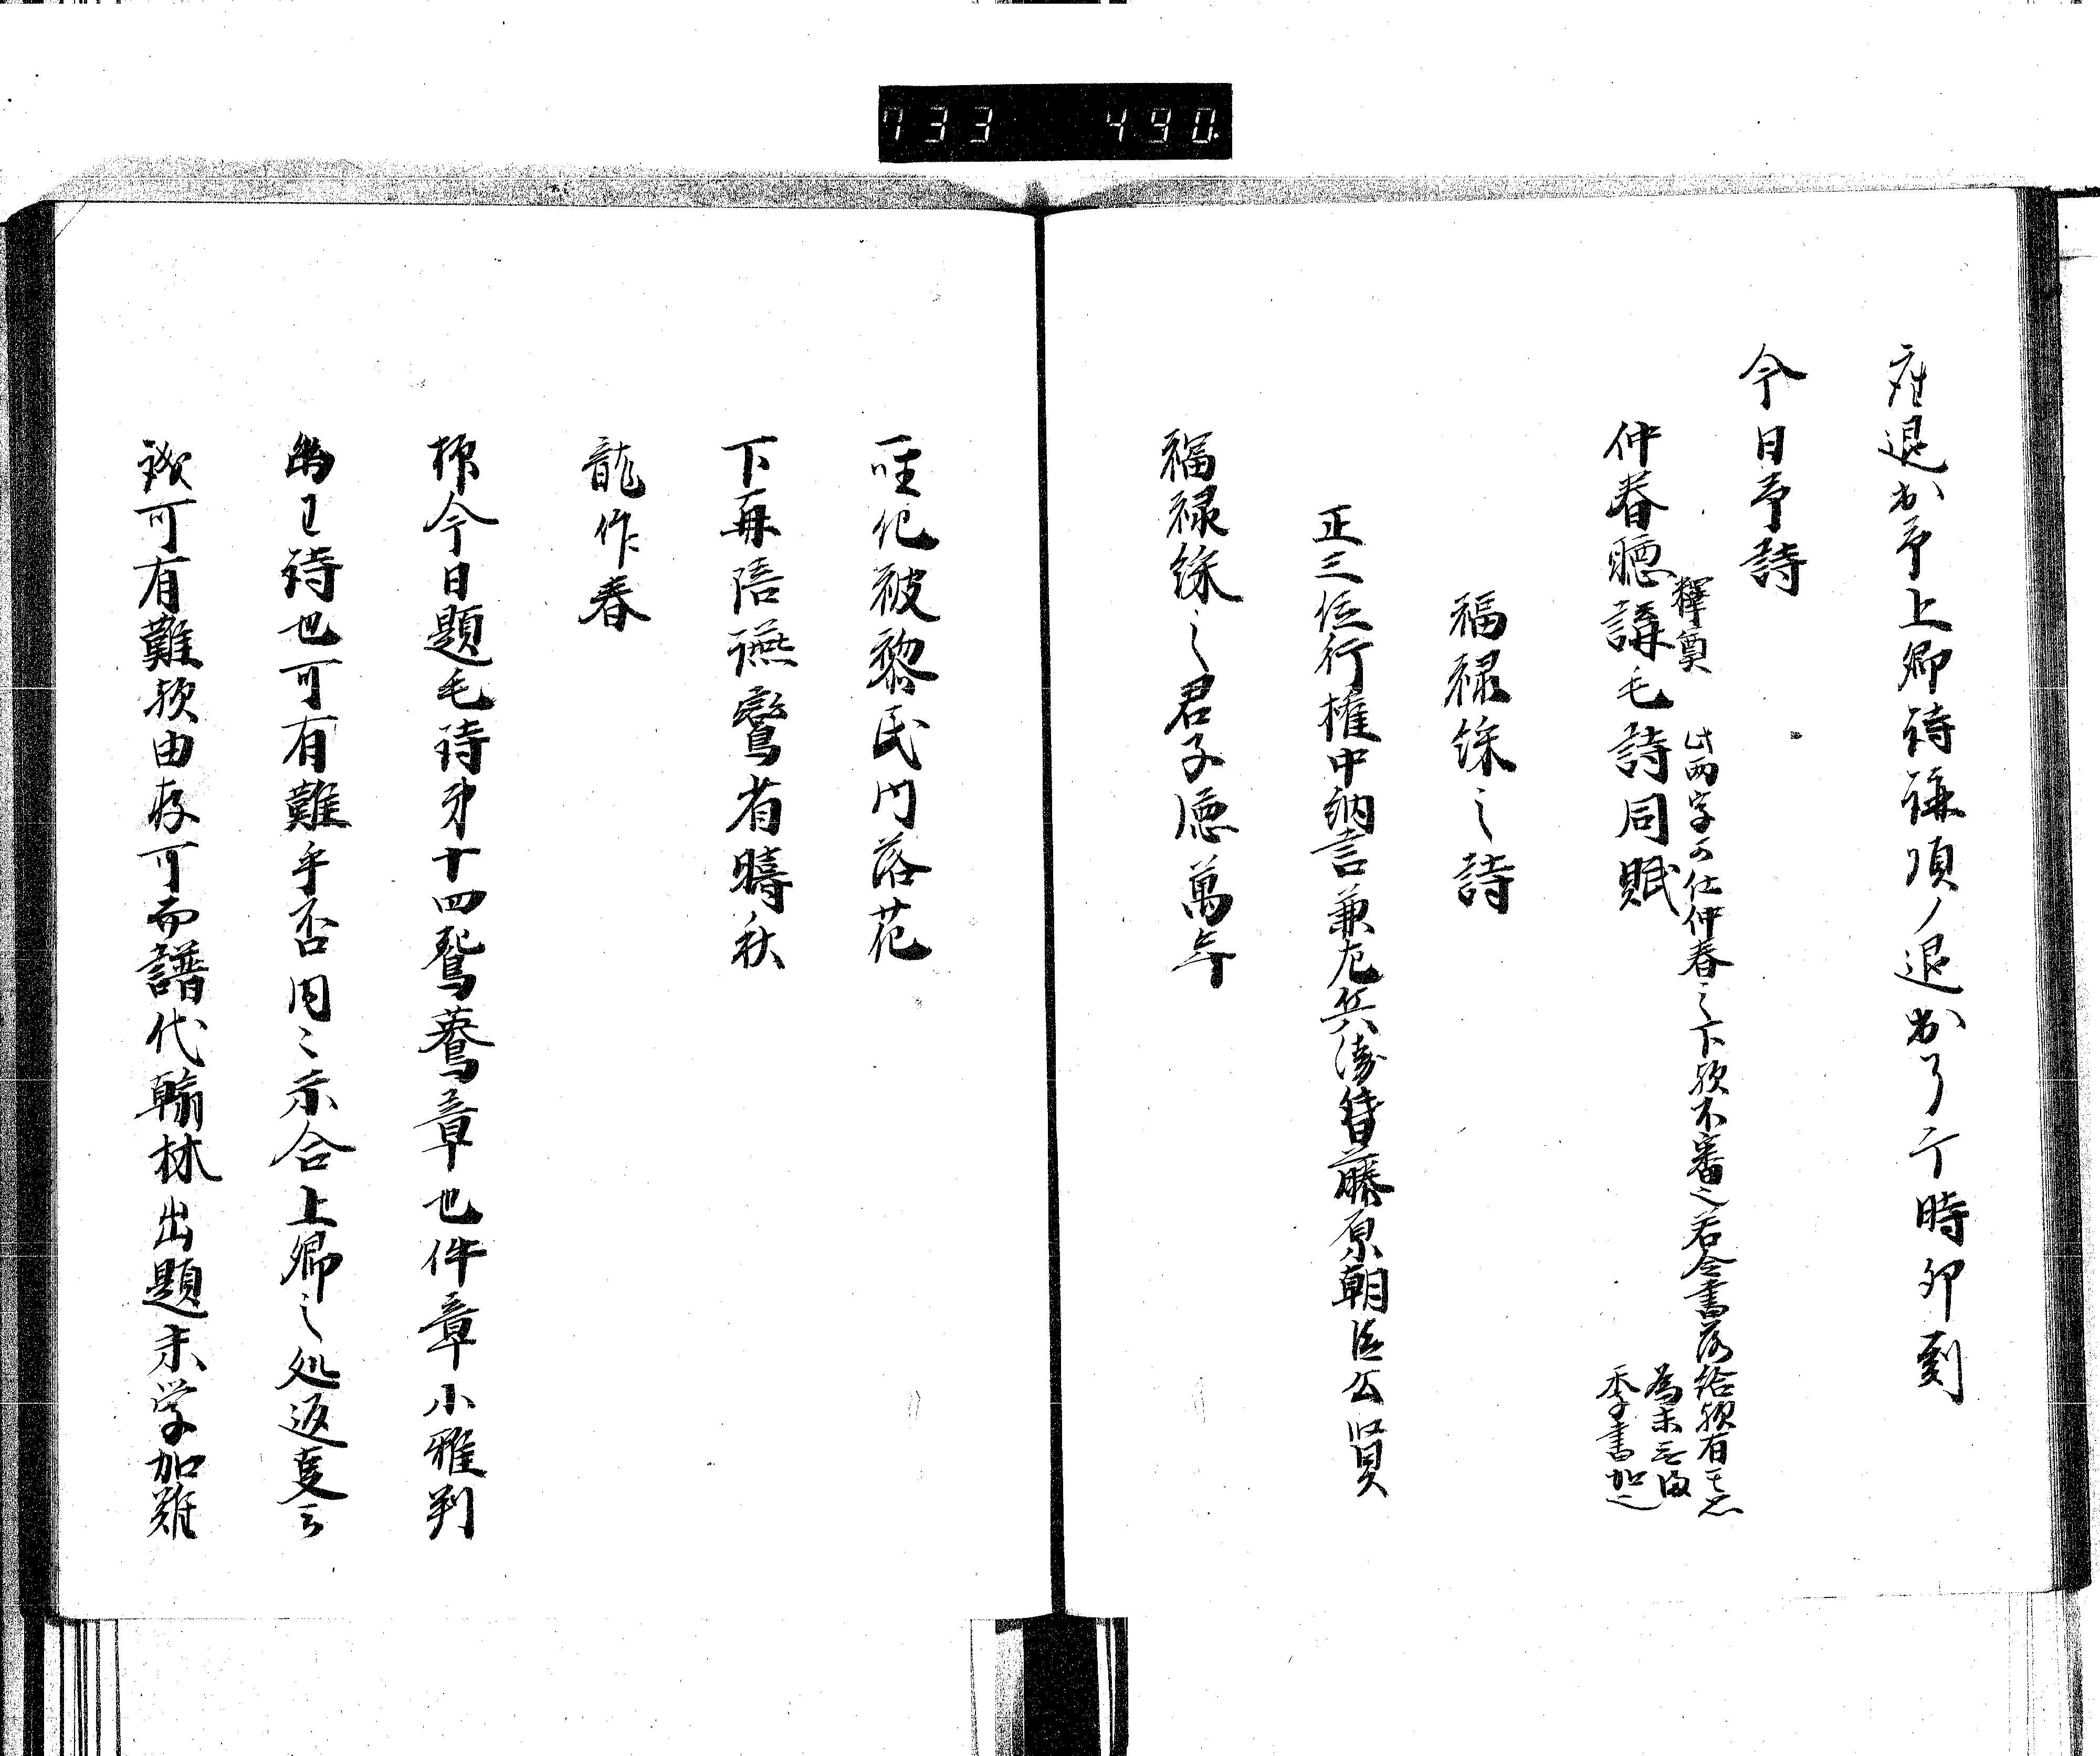 733 490
退出予上卿詩講頌ノ退出了于時卯刻
今日予詩
釋奠
此両字可仕仲春之下歟不審之若令書落給歟有
書加之
仲春聴講毛詩同賦
福禄綏之詩
正三位行権中納言兼左兵衛督藤原朝臣公賢
福禄綏之君子徳萬年
唯化被黎民門落花
下再陪讌鸞省疇秋
龍作春
抑今日題毛詩第十四鴛鴦章也件章小雅刺
幽王詩也可有難乎否内々示合上卿之処返事云
誠可有難歟由存可而譜代翰林出題未学加難